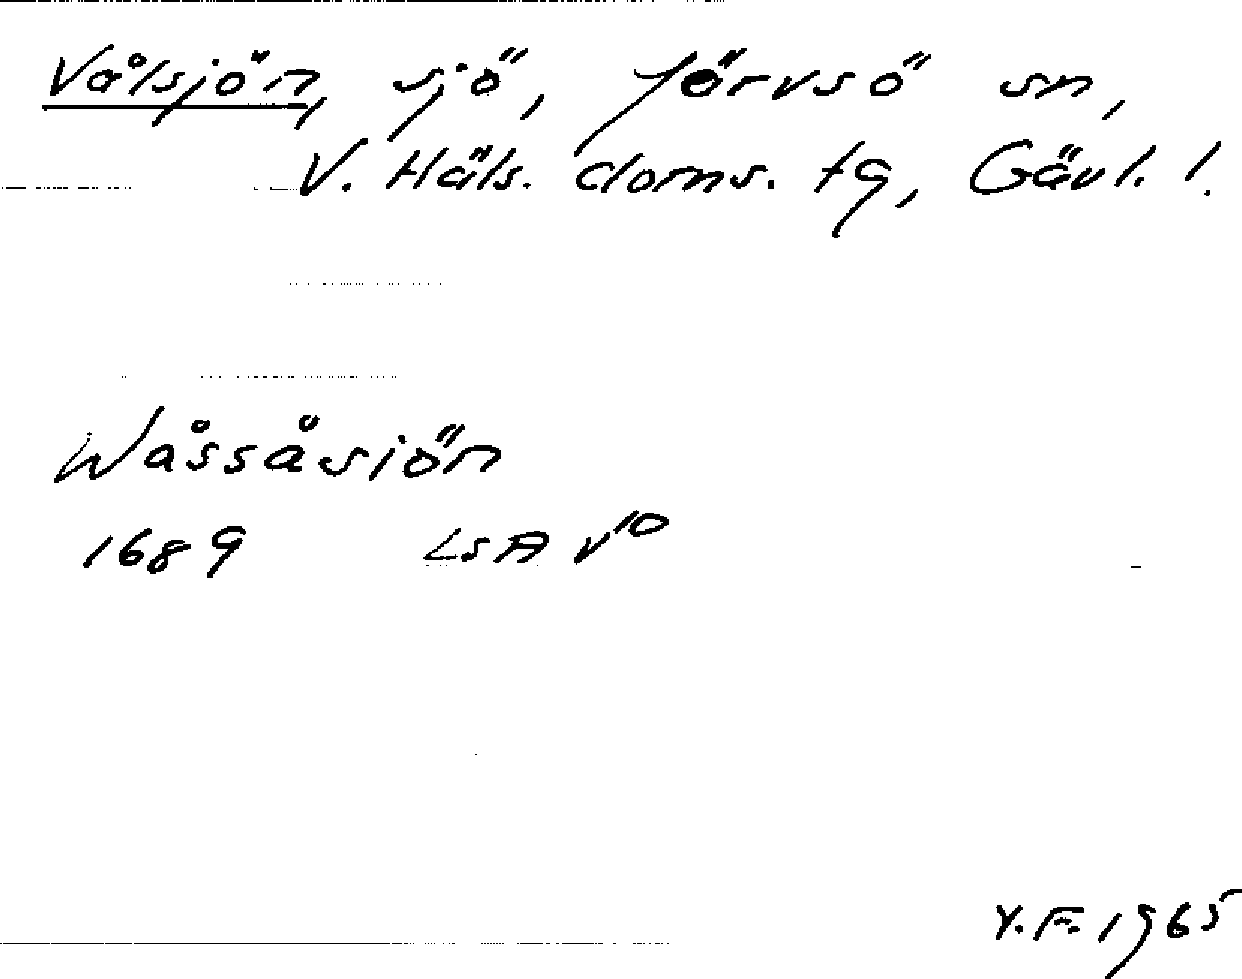 Vålsjön, sjö, Järvsö sn,
V. Häls. doms. tg, Gävl. l.
Wåssåsiön
1689 LsA v10
Y.F. 1965